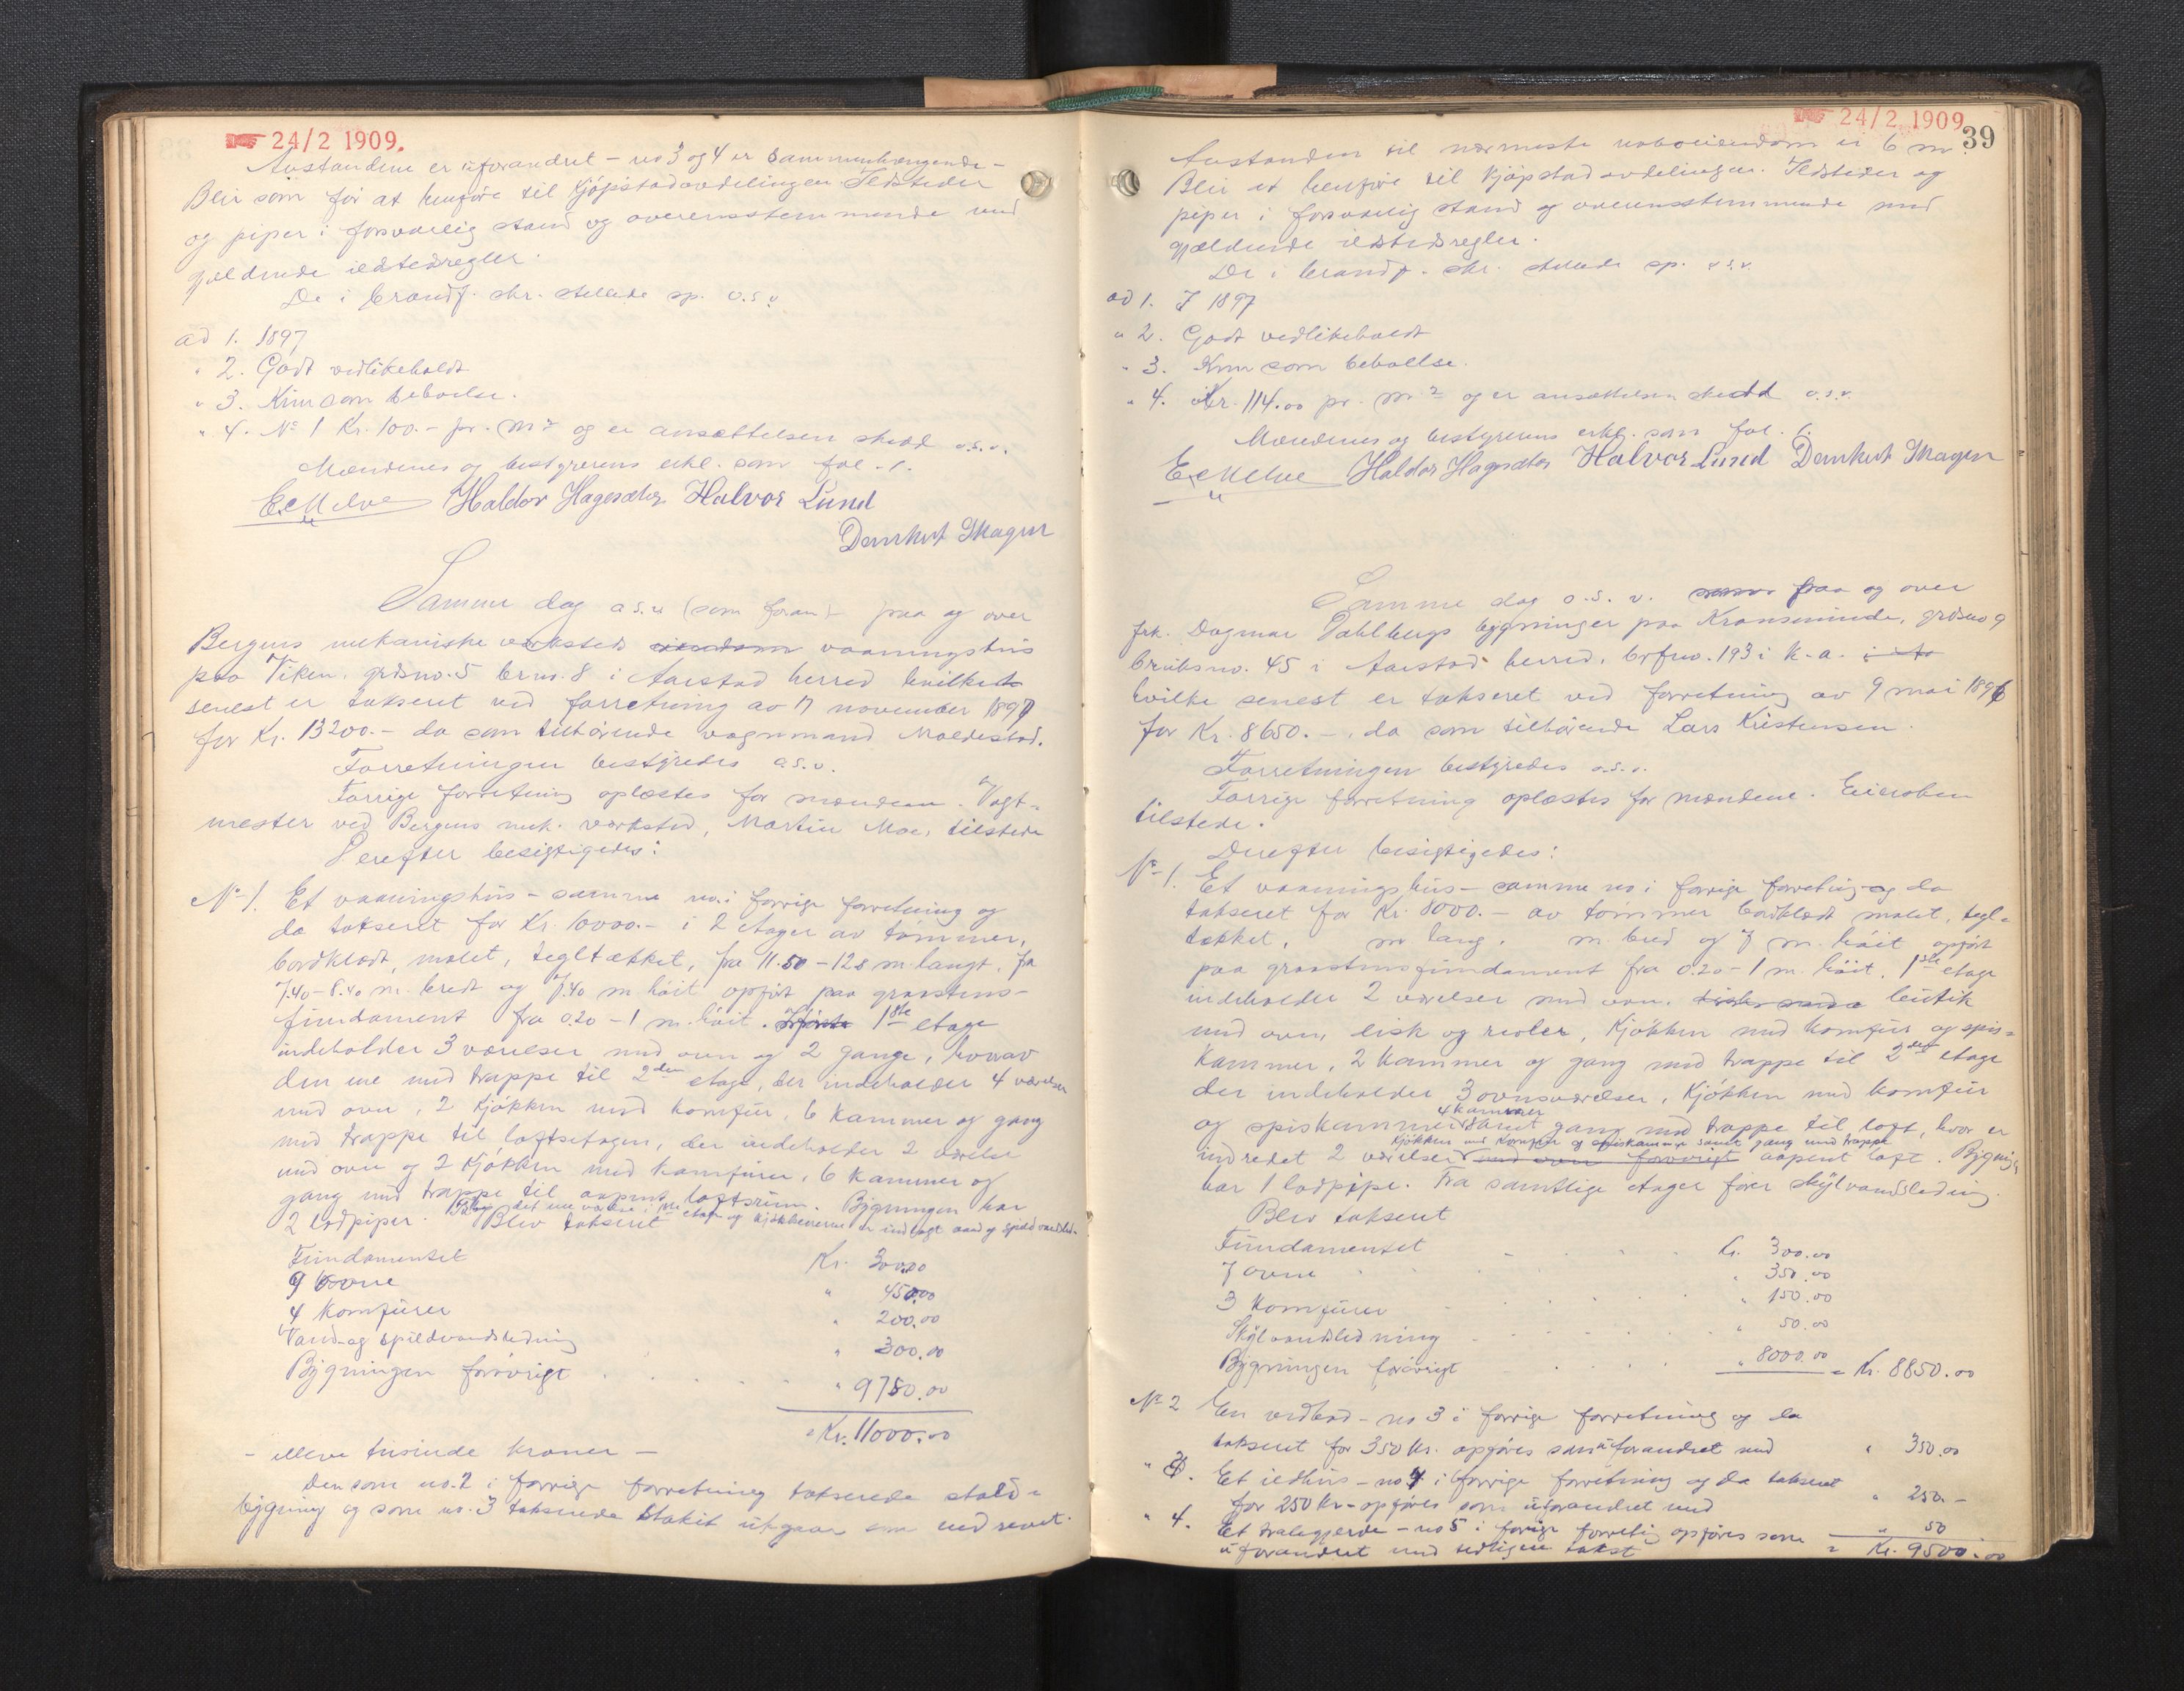 24/2 1909.
Avstandene er uforandret – no 3 og 4 er sammenhængende –
Blir som før at henføre til Kjøpstadavdelingen. Ildsteder
og piper i forsvarlig stand og overensstemmende med
gjældende ildstedsregler.
De i brandf. skr. stillede sp. o.s.v.
ad 1. 1897
" 2. Godt vedlikeholdt
" 3. Kun som beboelse.
" 4. No 1 Kr. 100.– pr. m2 og er ansættelsen skedd o.s.v.
Mændenes og bestyrerens erkl. som fol. 1.
E. Melve Haldor Hagesæter Halvor Lund
Samme dag o.s.v. (som foran) – paa og over
Bergens mekaniske verksteds eiendom vaaningshus
paa Viken, grdsno. 5 brno. 8 i Aarstad herred hvilket
senest er takseret ved forretning av 17 november 1897
for Kr. 13200.– da som tilhørende vognmand Moldestad.
Forretningen bestyredes o.s.v.
Forrige forretning oplæstes for mændene. Vagt-
mester ved Bergens mek. værksted, Martin Moe, tilstede
Derefter besigtigedes:
No 1. Et vaaningshus – samme no. i forrige forretning og
da takseret for Kr. 10000.– i 2 etager av tømmer,
bordklædt, malet, tegltækket, fra 11.50 – 12.5 m. langt, fra
7.40 – 8.40 m. bredt og 7.40 m høit opført paa graastens-
fundament fra 0.20 – 1 m. høit. 1ste etage
indeholder 3 værelser med ovn og 2 gange, hvorav
den ene med trappe til 2den etage, der indeholder 4 værelser
med ovn, 2 Kjøkken med komfur, 6 Kammer og gang
med trappe til loftsetagen, der indeholder 2 værelser
med ovn og 2 Kjøkken med komfurer, 6 Kammer og
gang med trappe til aapent loftsrum. Bygningen har
2 lodpiper. I det ene værelse i 1ste etage og kjøkkenerne er indlagt vand og spildvandsledn.
Blev takseret
Fundamentet Kr. 300.00
9 ovne " 450.00
4 Komfurer " 200.00
Vand- og spildvandsledning " 300.00
Bygningen forøvrigt " 9750.00
= Kr. 11000.00
– elleve tusinde kroner –
Den som no. 2 i forrige forretning takserede stald-
bygning og som no. 3 takserede stakit utgaar som nedrevet.
24/2 1909
39
Avstanden til nærmeste naboeiendom er 6 m
Blir at henføre til Kjøpstadavdelingen. Ildsteder og
piper i forsvarlig stand og overensstemmende med
gjældende ildstedsregler.
De i brandf. skr. stillede sp. o.s.v.
ad 1. I 1897
" 2. Godt vedlikeholdt
" 3. Kun som beboelse.
" 4. Kr. 114.00 pr. m2 og er ansættelsen skedd o.s.v.
Mændenes og bestyrerens erkl. som fol. 1.
E. Melve Haldor Hagesæter Halvor Lund
Samme dag o.s.v. paa og over
frk. Dagmar Dahlbergs bygninger paa Kransminde, grdsno 9
bruksno. 45 i Aarstad herred, brfno. 193 i K.a.
hvilke senest er takseret ved forretning av 9 mai 1896
for Kr. 8650.– da som tilhørende Lars Kristensen.
Forretningen bestyredes o.s.v.
Forrige forretning oplæstes for mændene. Eiersken
tilstede.
Derefter besigtigedes:
No 1. Et vaaningshus – samme no i forrige forretning og da
takseret for Kr. 8000.– av tømmer bordklædt malet, tegl-
tækket, m lang, m. bred og 7 m. høit opført
paa graastensfundament fra 0.20 – 1 m. høit. 1ste etage
indeholder 2 værelser med ovn, butik
med ovn, disk og reoler, Kjøkken med komfur og spis-
kammer, 2 Kammer og gang med trappe til 2den etage
der indeholder 3 ovnsværelser, Kjøkken med komfur
og spiskammer 4 kammer samt gang med trappe til loft, hvor er
indredet 2 værelser Kjøkken med komfur og spiskammer samt gang med trappe med ovn forøvrigt aapent loft. Bygningen
har 1 lodpipe. Fra samtlige etager fører skylvandsledning.
Blev takseret
Fundamentet Kr. 300.00
7 ovne " 350.00
3 Komfurer " 150.00
Skylvandsledning " 50.00
Bygningen forøvrigt " 8000.00 = Kr. 8850.00
No 2 En vedbod – no 3 i forrige forretning og da
takseret for 350 Kr. opføres som uforandret med " 350.00
" 3. Et ildhus – no 4 i forrige forretning og da takseret
for 250 Kr – opføres som uforandret med " 250.–
" 4. Et tralegjerde – no 5 i forrige forretning opføres som " 50
uforandret med tidligere takst = Kr. 9500.00